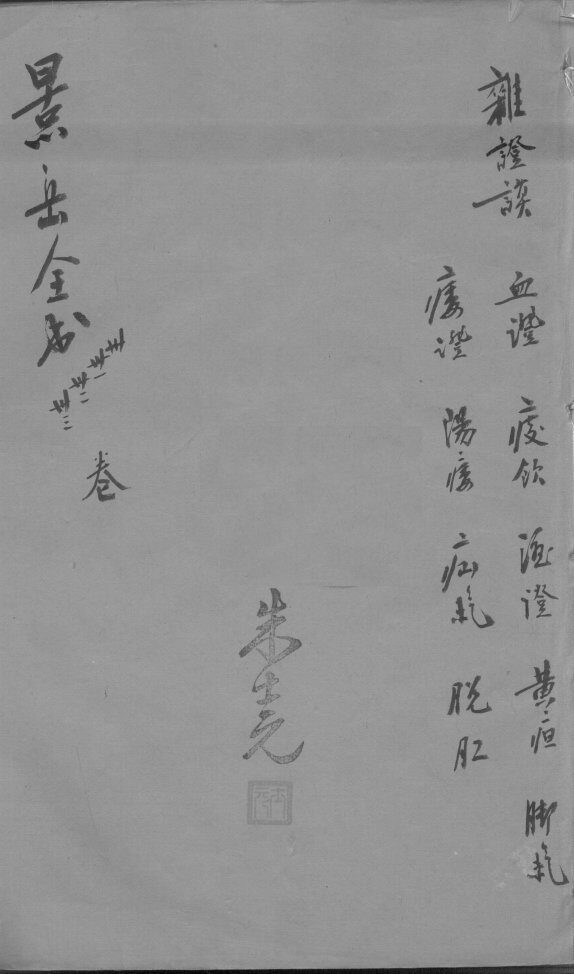 雜證謨
血證 痰飲 濕證 黃疸 脚氣
痿證 陽痿 疝氣 脱肛
朱
景岳全书
卅
卅一
卅二
卅三
卷